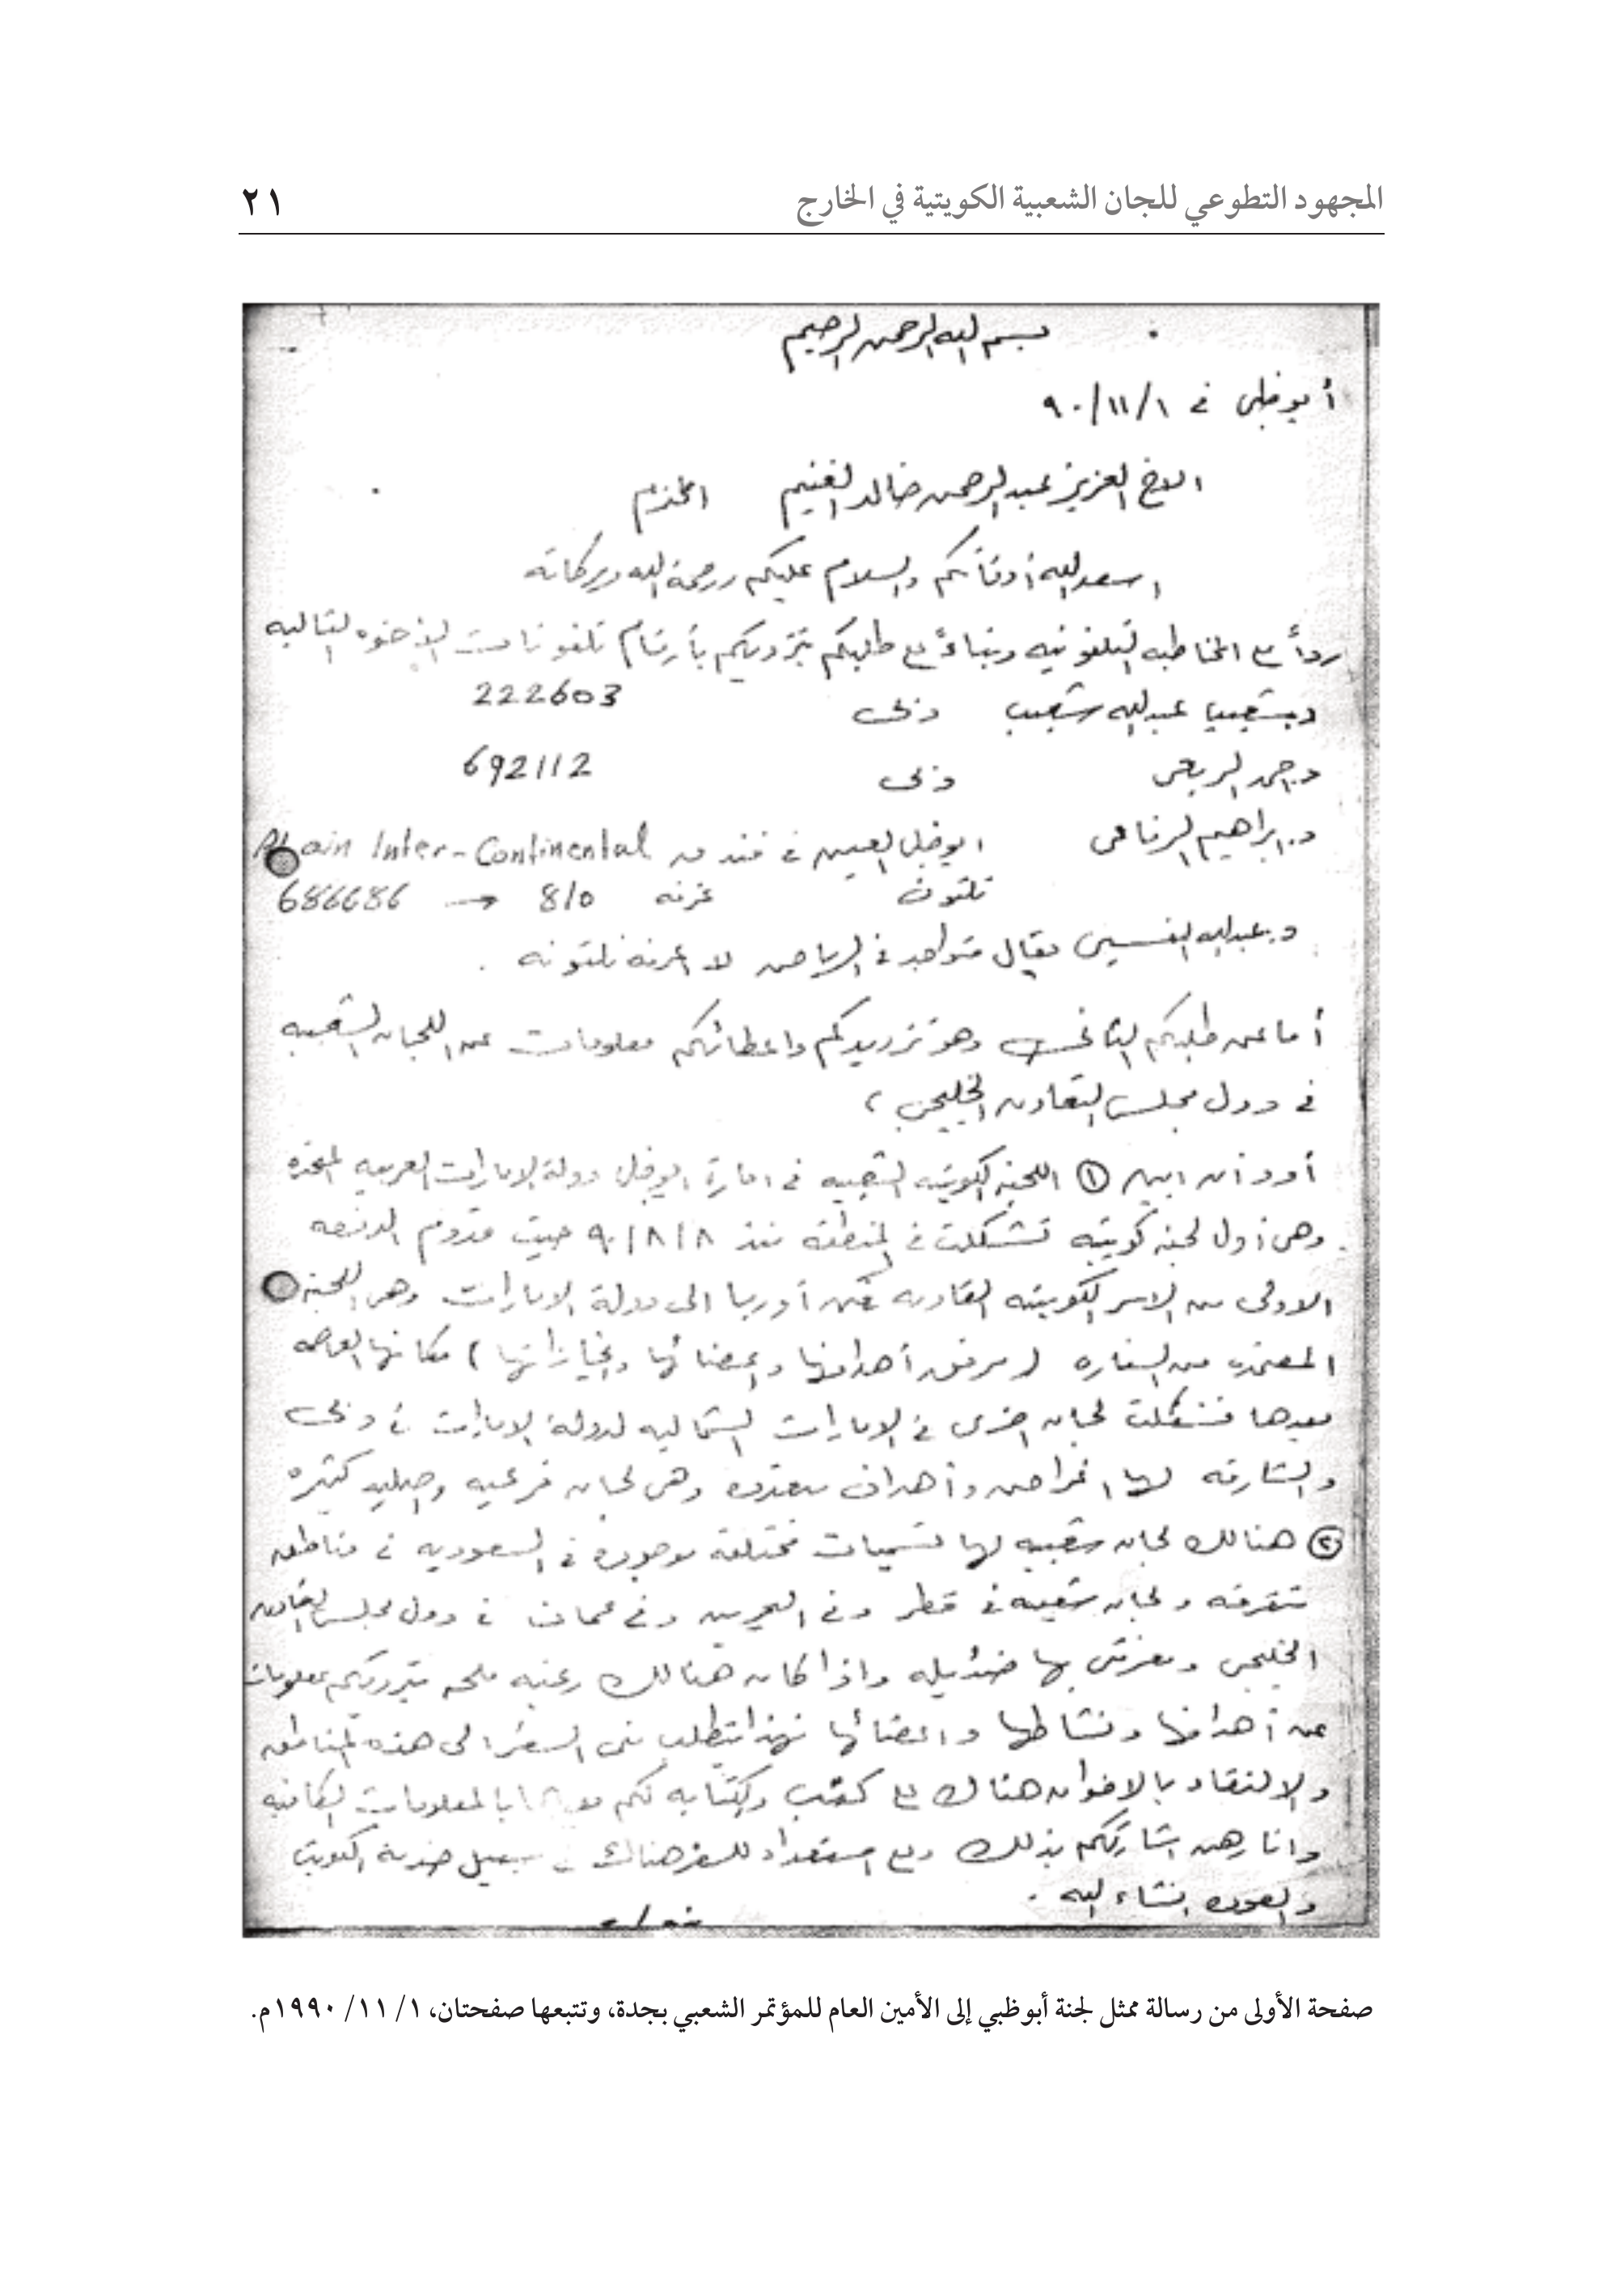 المجهود التطوعي للجان الشعبية الكويتية في الخارج
٢١
بسم الله الرحمن الرحيم
أبوظبي في ٩٠/١١/١
الاخ العزيز عبدالرحمن خالد الغنيم المحترم
اسعد الله أوقاتكم والسلام عليكم ورحمة الله وبركاته
رداً ع المخاطبه التلفونيه وبناءً ع طلبكم بتزويدكم بأرقام تلفونات الأخوه التاليه
عبدالله شعيب دبى 222603
د. احمد الربعى دبى 692112
د. ابراهيم الرفاعى ابوظبي العين في فندق Al ain Inter-Continental
تلفون غرفه 810 → 686686
د. عبدالله النفيسى يقال متواجد في الرياض لا اعرف تلفونه .
أما عن طلبكم الثاني وهو تزويدكم واعطائكم معلومات عن اللجان الشعبيه
في دول مجلس التعاون الخليجي ،
أود أن ابين ① اللجنه الكويتيه الشعبيه في امارة ابوظبي دولة الامارات العربيه المتحده
وهي أول لجنه كويتيه تشكلت في المنطقه منذ ٩٠/٨/٨ حيث قدوم الدفعه
الاولى من الاسر الكويتيه القادمه من أوربا الى دولة الامارات وهي اللجنه
المعتمده من السفاره ( مرفق أهدافها واعضائها وانجازاتها ) مكانها العاصمه
بعدها تشكلت لجان اخرى في الامارات الشماليه لدولة الامارات في دبى
والشارقه لها اغراض وأهداف متعدده وهي لجان فرعيه كثيره
② هنالك لجان شعبيه لها تسميات مختلفه موجوده في السعوديه في مناطق
متفرقه ولجان شعبيه في قطر وفي البحرين وفي عمان في دول مجلس التعاون
الخليجي ومعرفتي بها ضئيله واذا كان هنالك رغبه ملحه بتزويدكم بمعلومات
عن أهدافها ونشاطها واعضائها فهذا يتطلب مني السفر الى هذه المناطق
والالتقاء بالاخوان هناك ع كثب والكتابه لكم بالمعلومات الكافيه
وانا رهن اشارتكم بذلك وع استعداد للسفر هناك في سبيل خدمة الكويت
والعوده انشاء الله .
صفحة الأولى من رسالة ممثل لجنة أبوظبي إلى الأمين العام للمؤتمر الشعبي بجدة، وتتبعها صفحتان، ١/ ١١/ ١٩٩٠م.